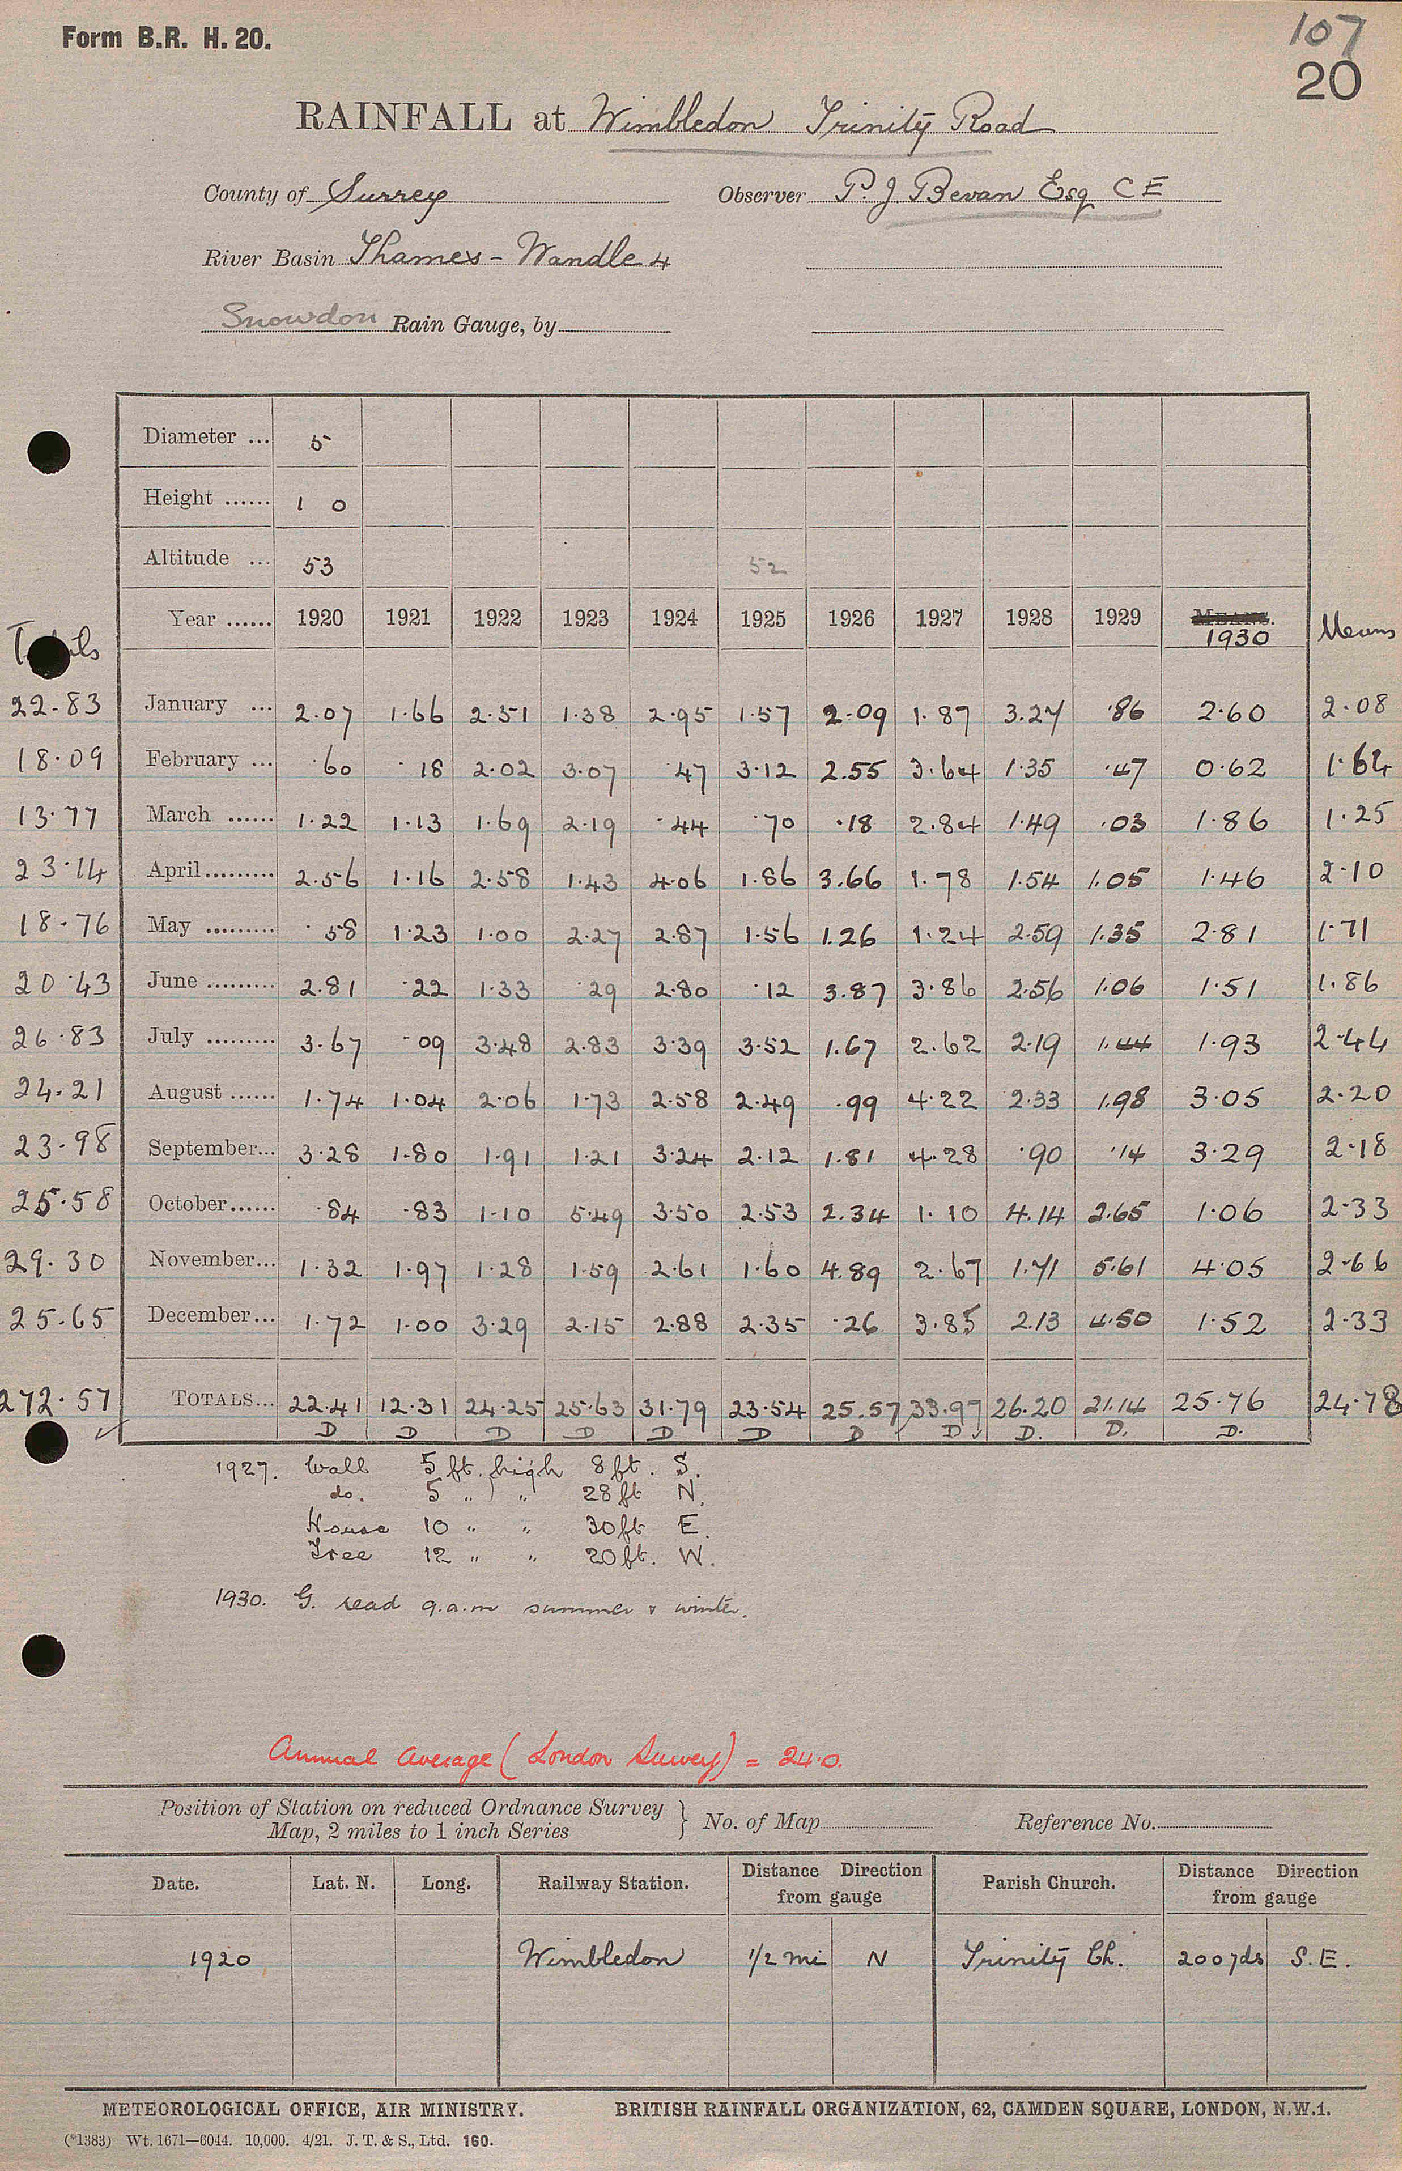 Form B.R. H. 20.
107
20
RAINFALL at Wimbledon Trinity Road
County of Surrey Observer P. J. Bevan Esq C E
River Basin Thames - Wandle 4
Snowdon Rain Gauge, by
Diameter ... 5
Height ...... 1 0
Altitude ... 53 52
Year ...... 1920 1921 1922 1923 1924 1925 1926 1927 1928 1929 MEANS.
Totals 1930 Means
22.83 January ... 2.07 1.66 2.51 1.38 2.95 1.57 2.09 1.87 3.27 .86 2.60 2.08
18.09 February ... .60 .18 2.02 3.07 .47 3.12 2.55 3.64 1.35 .47 0.62 1.64
13.77 March ...... 1.22 1.13 1.69 2.19 .44 .70 .18 2.84 1.49 .03 1.86 1.25
23.14 April ......... 2.56 1.16 2.58 1.43 4.06 1.86 3.66 1.78 1.54 1.05 1.46 2.10
18.76 May ......... .58 1.23 1.00 2.27 2.87 1.56 1.26 1.24 2.59 1.35 2.81 1.71
20.43 June ......... 2.81 .22 1.33 .29 2.80 .12 3.87 3.86 2.56 1.06 1.51 1.86
26.83 July ......... 3.67 .09 3.48 2.83 3.39 3.52 1.67 2.62 2.19 1.44 1.93 2.44
24.21 August ...... 1.74 1.04 2.06 1.73 2.58 2.49 .99 4.22 2.33 1.98 3.05 2.20
23.98 September... 3.28 1.80 1.91 1.21 3.24 2.12 1.81 4.28 .90 .14 3.29 2.18
25.58 October...... .84 .83 1.10 5.49 3.50 2.53 2.34 1.10 4.14 2.65 1.06 2.33
29.30 November... 1.32 1.97 1.28 1.59 2.61 1.60 4.89 2.67 1.71 5.61 4.05 2.66
25.65 December... 1.72 1.00 3.29 2.15 2.88 2.35 .26 3.85 2.13 4.50 1.52 2.33
272.57 TOTALS... 22.41 12.31 24.25 25.63 31.79 23.54 25.57 33.97 26.20 21.14 25.76 24.78
D D D D D D D D D. D. D.
1927. Wall 5 ft. high 8 ft. S.
do. 5 " " 28 ft N.
House 10 " " 30 ft E.
Tree 12 " " 20 ft. W.
1930. G. read 9 a.m summer & winter.
Annual average (London Survey) = 24.0.
Position of Station on reduced Ordnance Survey
Map, 2 miles to 1 inch Series } No. of Map Reference No.
Date. Lat. N. Long. Railway Station. Distance Direction from gauge Parish Church. Distance Direction from gauge
1920 Wimbledon 1/2 mi N Trinity Ch. 200 yds S.E.
METEOROLOGICAL OFFICE, AIR MINISTRY. BRITISH RAINFALL ORGANIZATION, 62, CAMDEN SQUARE, LONDON, N.W.1.
(*1383) Wt. 1671—6044. 10,000. 4/21. J. T. & S., Ltd. 160.